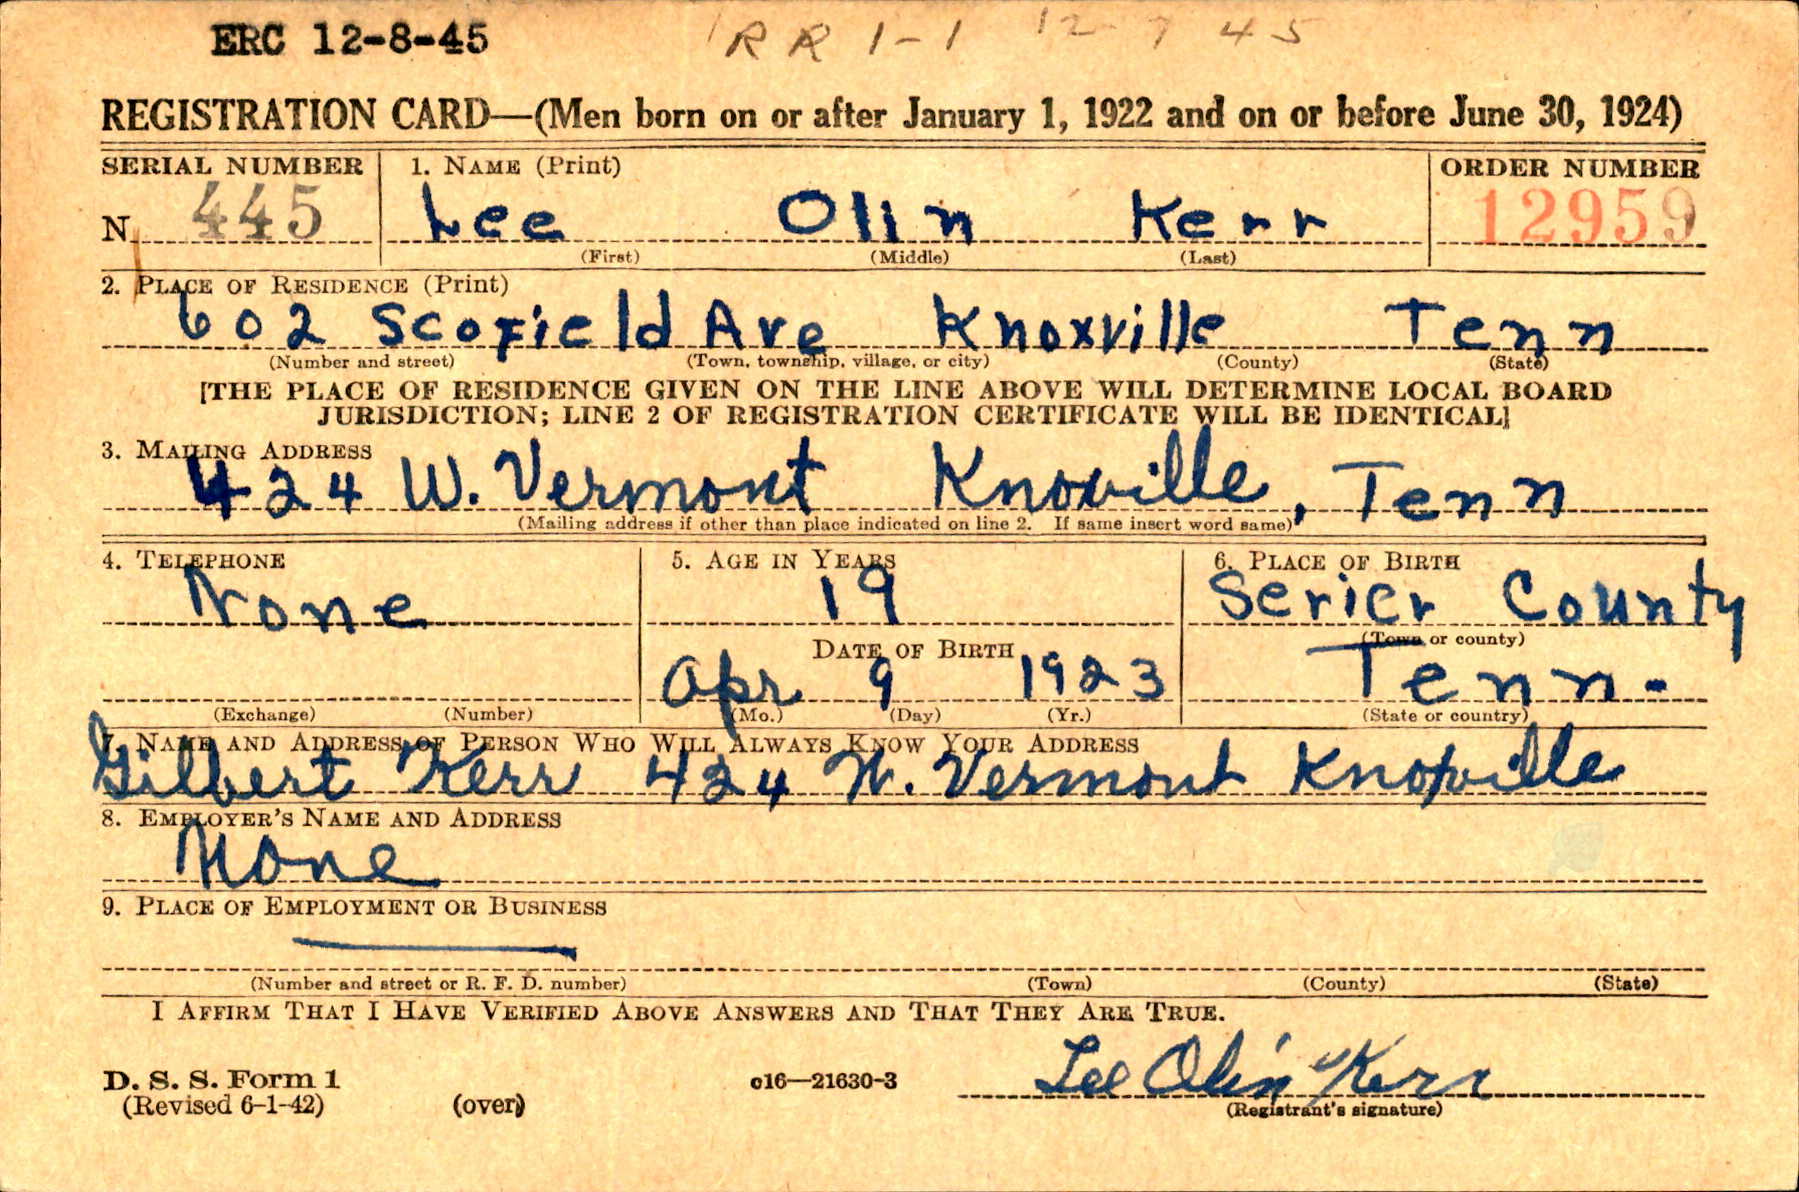 ERC 12-8-45 RR 1-1 12-7 45
REGISTRATION CARD—(Men born on or after January 1, 1922 and on or before June 30, 1924)
SERIAL NUMBER 1. NAME (Print) ORDER NUMBER
N 445 Lee Olin Kerr 12959
(First) (Middle) (Last)
2. PLACE OF RESIDENCE (Print)
602 Scofield Ave Knoxville Tenn
(Number and street) (Town, township, village, or city) (County) (State)
[THE PLACE OF RESIDENCE GIVEN ON THE LINE ABOVE WILL DETERMINE LOCAL BOARD
JURISDICTION; LINE 2 OF REGISTRATION CERTIFICATE WILL BE IDENTICAL]
3. MAILING ADDRESS
424 W. Vermont Knoxville, Tenn
(Mailing address if other than place indicated on line 2. If same insert word same)
4. TELEPHONE 5. AGE IN YEARS 6. PLACE OF BIRTH
None 19 Sevier County
(Town or county)
DATE OF BIRTH
Apr 9 1923 Tenn.
(Exchange) (Number) (Mo.) (Day) (Yr.) (State or country)
7. NAME AND ADDRESS OF PERSON WHO WILL ALWAYS KNOW YOUR ADDRESS
Gilbert Kerr 424 W. Vermont Knoxville
8. EMPLOYER'S NAME AND ADDRESS
None
9. PLACE OF EMPLOYMENT OR BUSINESS
(Number and street or R. F. D. number) (Town) (County) (State)
I AFFIRM THAT I HAVE VERIFIED ABOVE ANSWERS AND THAT THEY ARE TRUE.
Lee Olin Kerr
D. S. S. Form 1 c16—21630-3
(Revised 6-1-42) (over) (Registrant's signature)